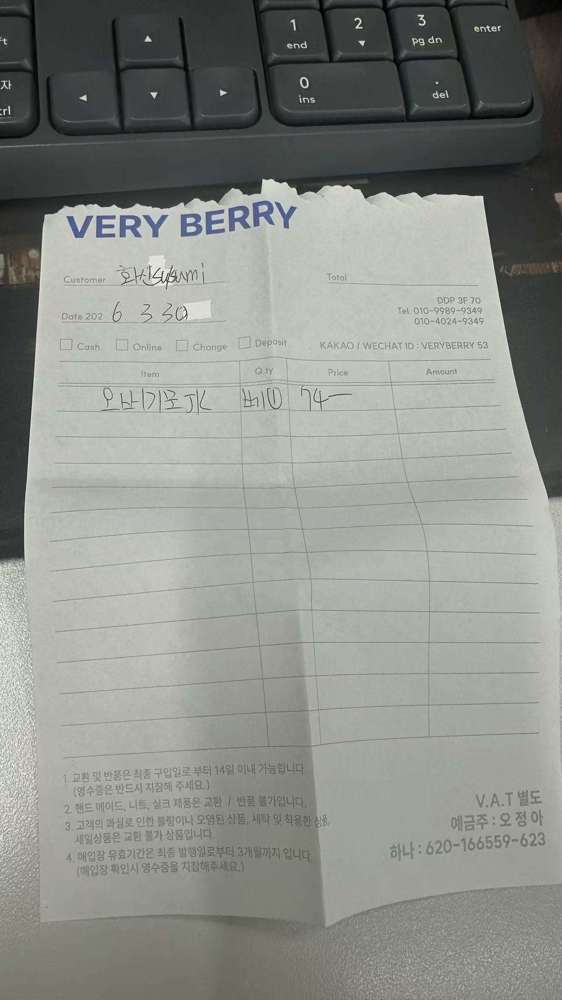 ft
자
trl
1
end
2
3
pg dn
enter
0
ins
.
del
VERY BERRY
Customer 화산sysumi
Total
Date 202 6 3 30
DDP 3F 70
Tel. 010-9989-9349
010-4024-9349
Cash Online Change Deposit
KAKAO / WECHAT ID : VERYBERRY 53
Item Q.ty Price Amount
오버기모JK 베① 74-
1. 교환 및 반품은 최종 구입일로 부터 14일 이내 가능합니다.
(영수증은 반드시 지참해 주세요.)
2. 핸드 메이드, 니트, 실크 제품은 교환 / 반품 불가입니다.
3. 고객의 과실로 인한 불량이나 오염된 상품, 세탁 및 착용한 상품,
세일상품은 교환 불가 상품입니다.
4. 매입장 유효기간은 최종 발행일로부터 3개월까지 입니다.
(매입장 확인시 영수증을 지참해주세요.)
V.A.T 별도
예금주 : 오정아
하나 : 620-166559-623